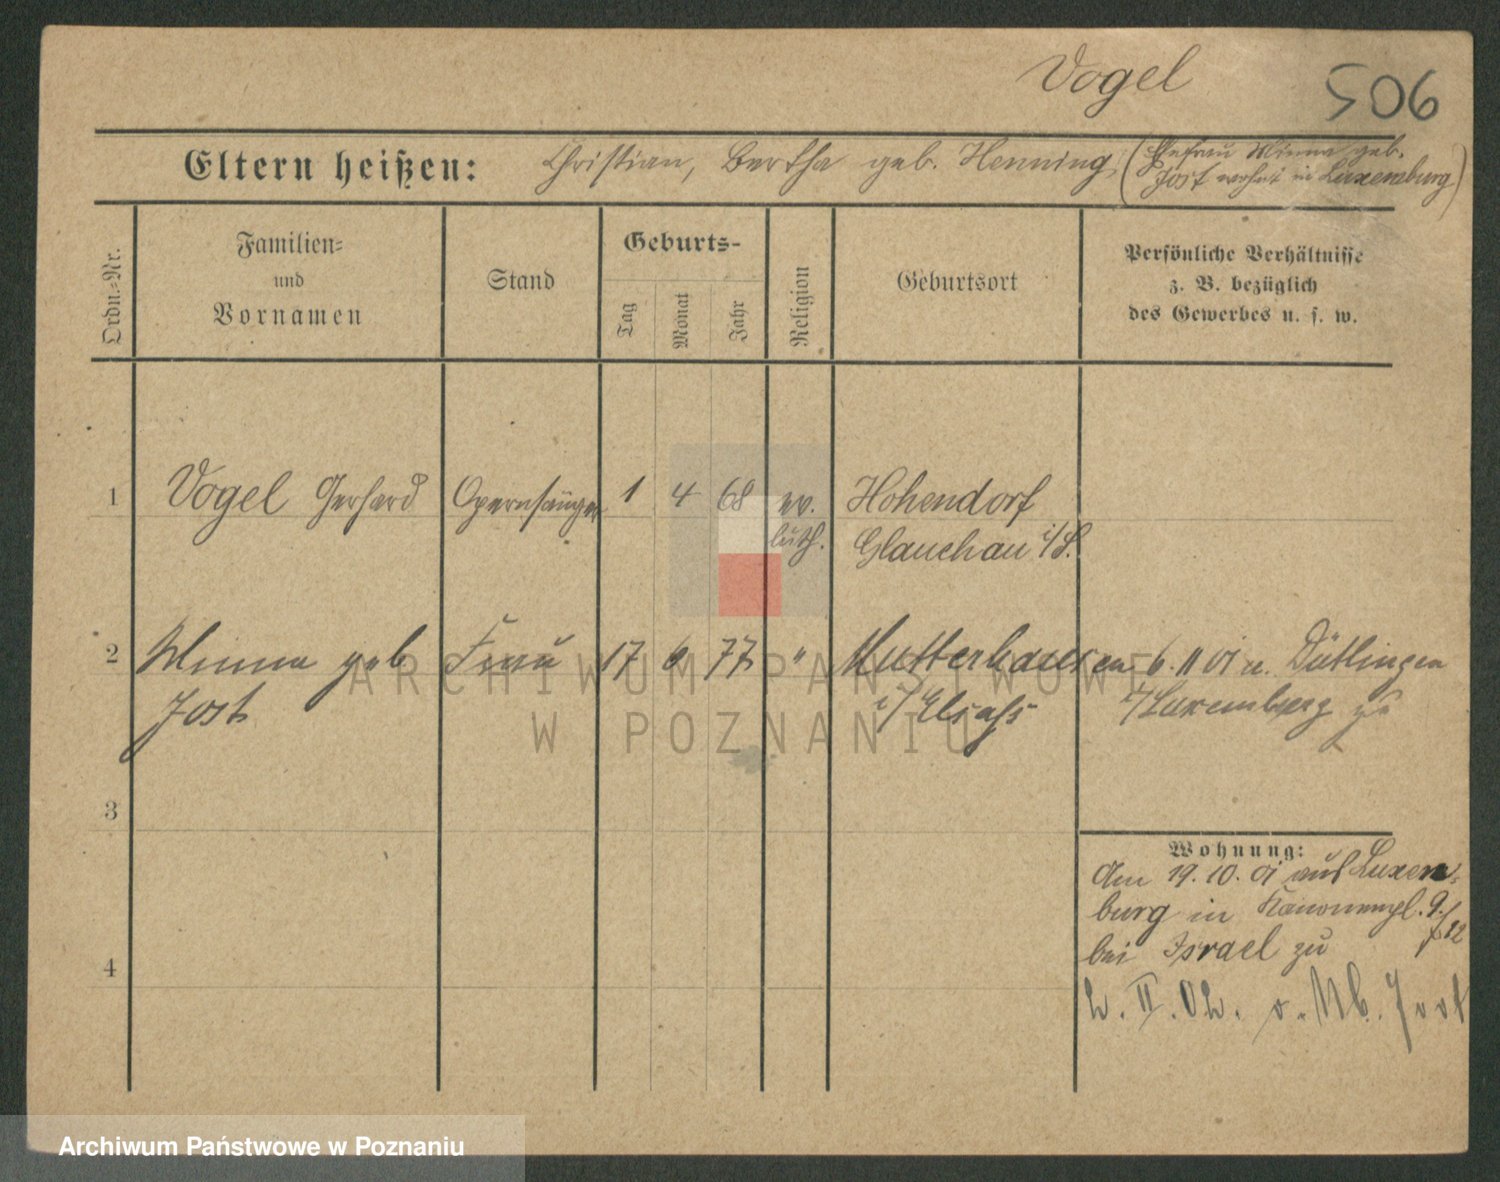 Vogel
506
Eltern heißen: Christian, Bertha geb. Henning (Ehefrau Minna geb.
Jost wohnt in Luxemburg)
Ordn.-Nr.
Familien-
und
Vornamen
Stand
Geburts-
Tag
Monat
Jahr
Religion
Geburtsort
Persönliche Verhältnisse
z. B. bezüglich
des Gewerbes u. s. w.
1 Vogel Gerhard Opernsänger 1 4 68 ev. Hohendorf
luth. Glauchau i/S.
2 Minna geb Frau 17 6 77 " Mutterhausen 6. 11 01 n. Dütlingen
Jost i/Elsaß i/Luxemberg zu
3
Wohnung:
Am 19.10.01 aus Luxem-
burg in Kanonenpl. 9.
bei Israel zu
4
2. II. 02. v. Jost
ARCHIWUM PAŃSTWOWE
W POZNANIU
Archiwum Państwowe w Poznaniu